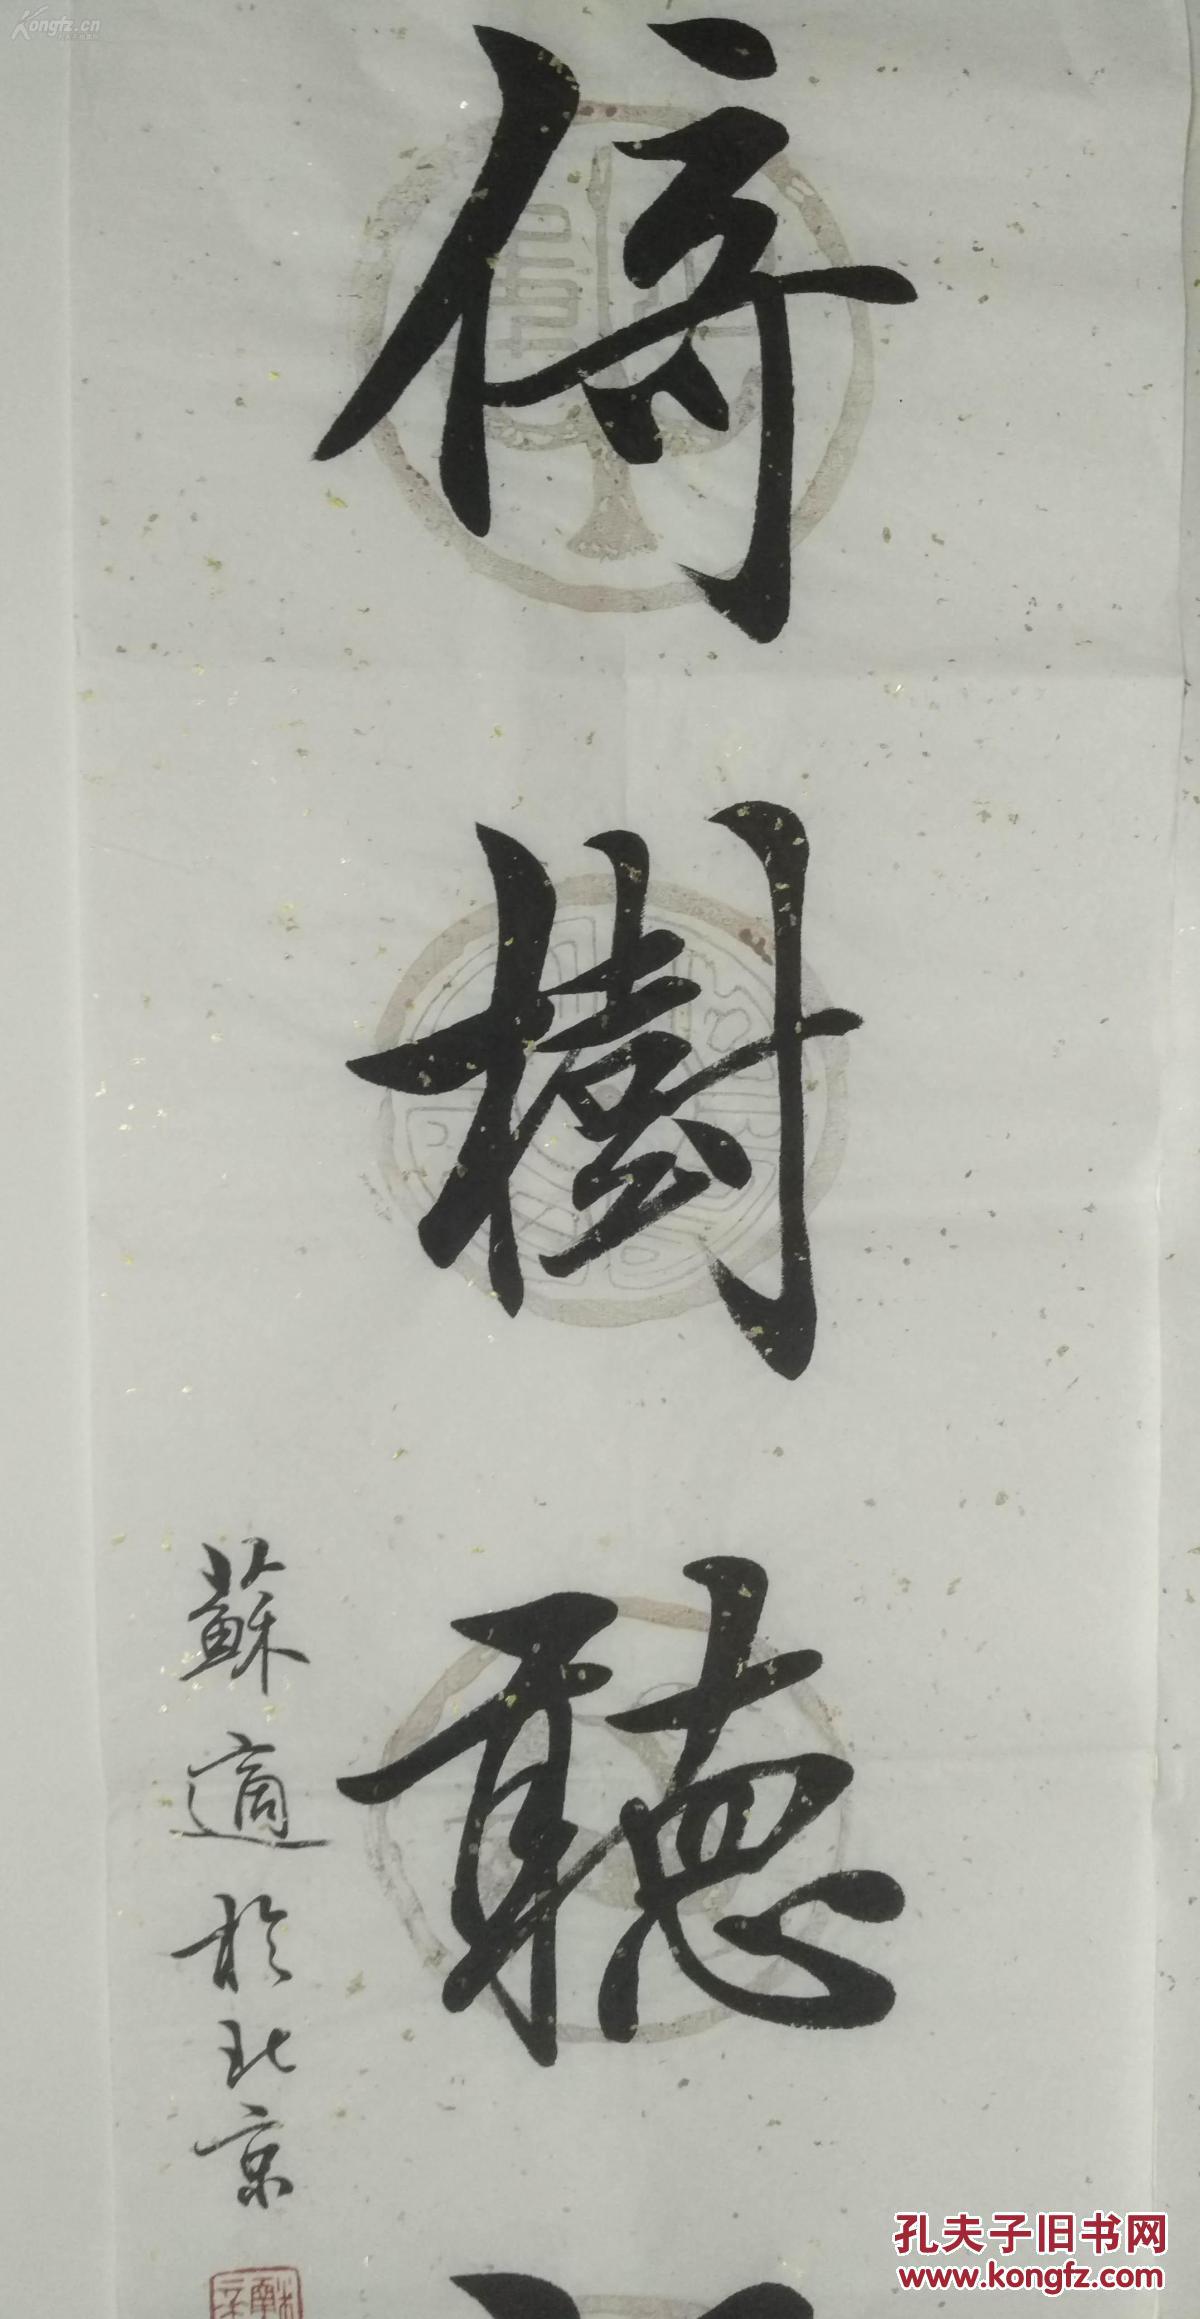 倚樹聽
蘇適於北京
Kongfz.cn
孔夫子旧书网
www.kongfz.com